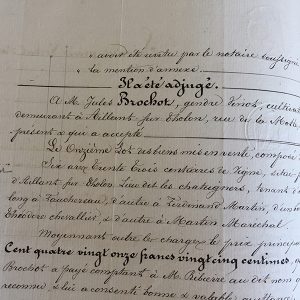 avoir été revêtu par le notaire soussigné
la mention d'annexe
Il a été adjugé.
A M. Jules Brochot, gendre Vinot, cultiv
demeurant à Aillant sur Tholon, rue de la Motte
présent & qui a accepté
Le Onzième Lot des biens mis en vente, composé
Six ares Trente Trois centiares de Vigne, situé
d'Aillant sur Tholon Lieu dit les chataigniers, tenant
long à Fauchereau, d'autre à Ferdinand Martin, d'un
Théodore chevallier & d'autre à Martin Marechal.
Moyennant outre les charges le prix principal
Cent quatre vingt onze francs vingt cinq centimes, q
Brochot a payé comptant à M. Ribière au dit nom
reconnait & lui a consenti bonne & valable quittance